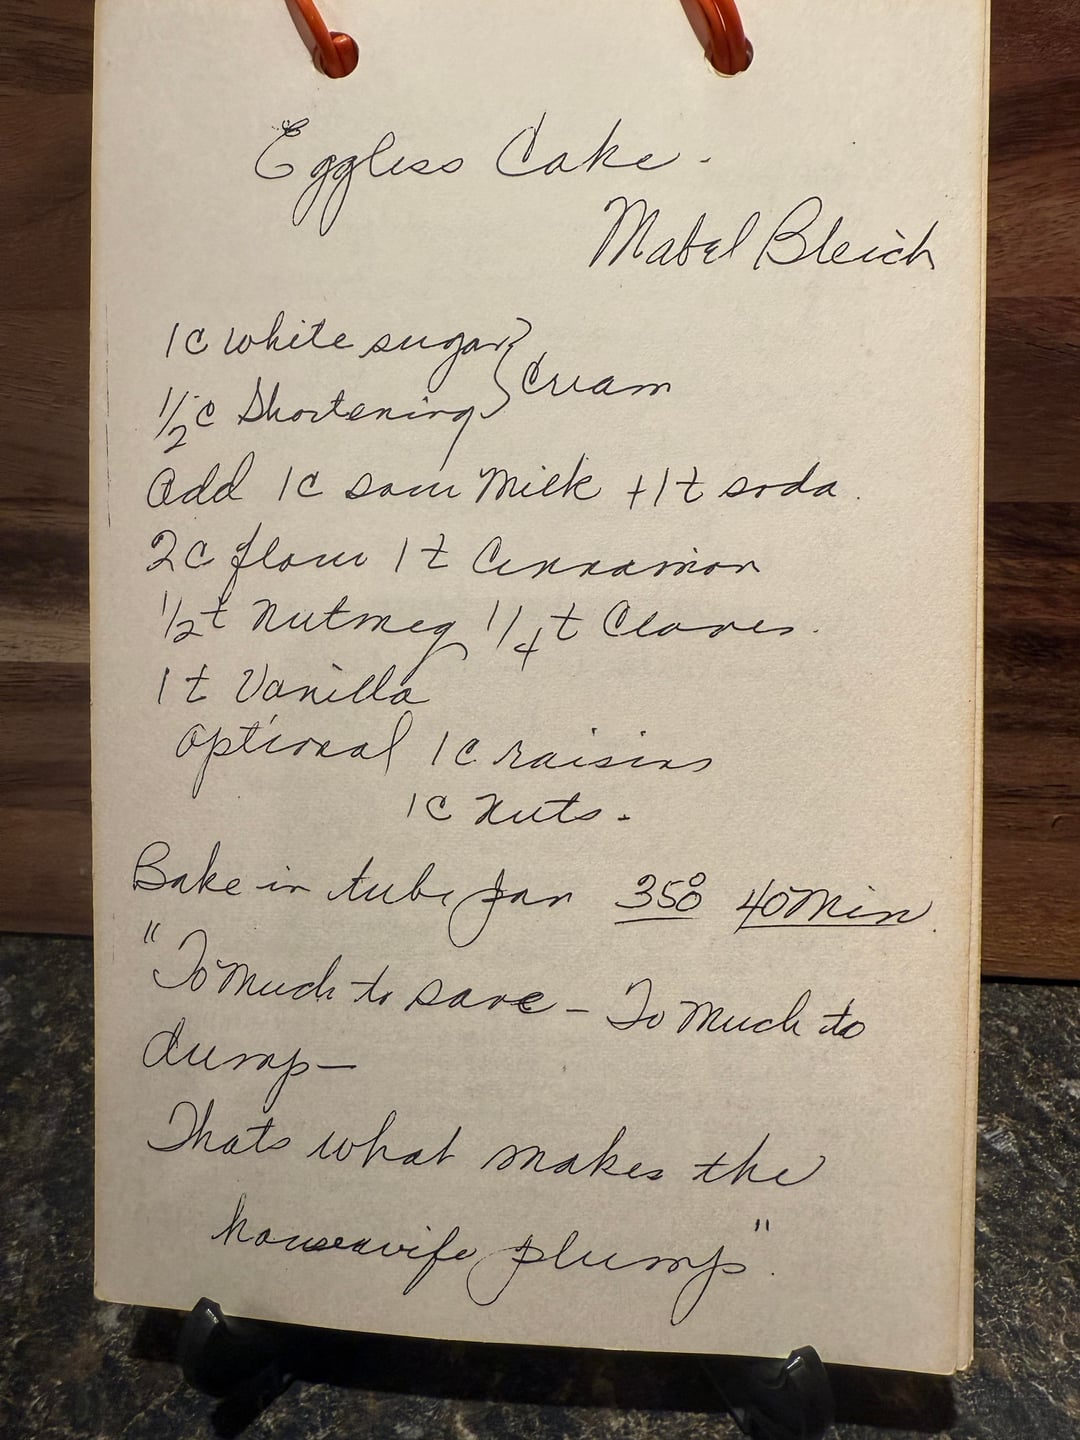 Eggless Cake.
Mabel Bleich
1c white sugar
1/2c Shortening } Cream
Add 1c sour Milk + 1t soda.
2c flour 1t Cinnamon
1/2t Nutmeg 1/4t Cloves.
1t Vanilla
optional 1c raisins
1c Nuts.
Bake in tube pan 350° 40 Min.
"To Much to save - To Much to
dump-
Thats what makes the
housewife plump".